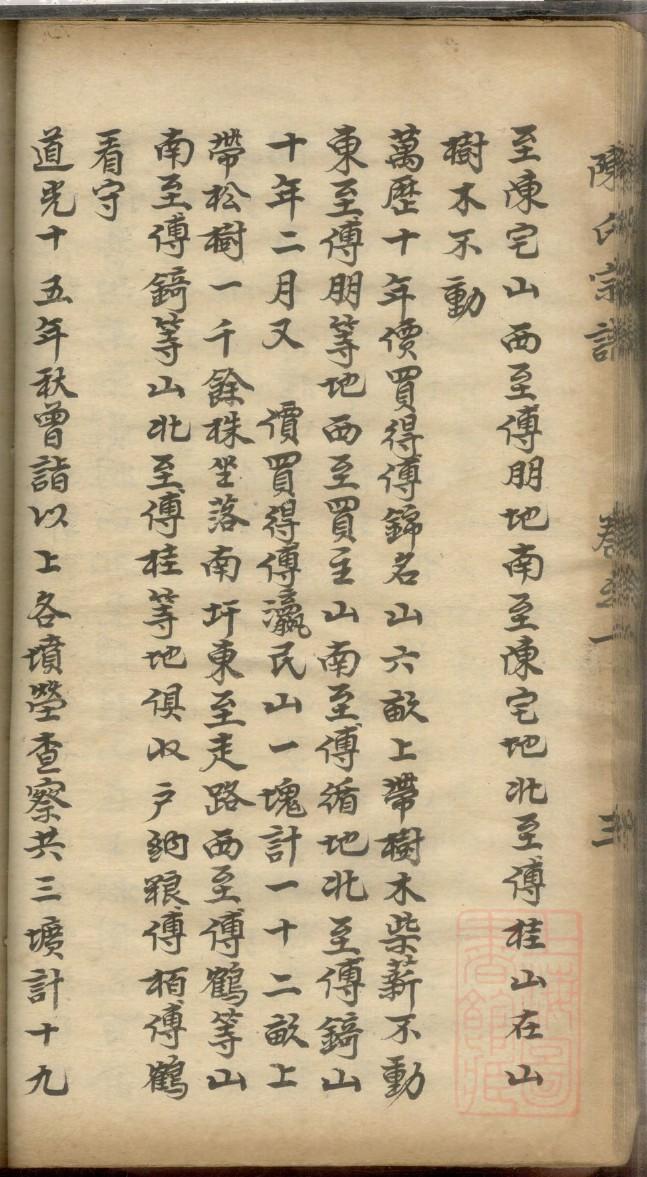 陳氏宗譜
至陳宅山西至傅朋地南至陳宅地北至傅桂山在山
樹木不動
萬歷十年價買得傅錦名山六畝上帶樹木柴薪不動
東至傅朋等地西至買主山南至傅循地北至傅錡山
十年二月又 價買得傅瀛民山一塊計一十二畝上
帶松樹一千餘株坐落南圩東至走路西至傅鶴等山
南至傅錡等山北至傅桂等地俱收戶納粮傅栢傅鶴
看守
道光十五年秋曾詣以上各墳塋查察共三壙計十九
上海圖書館藏